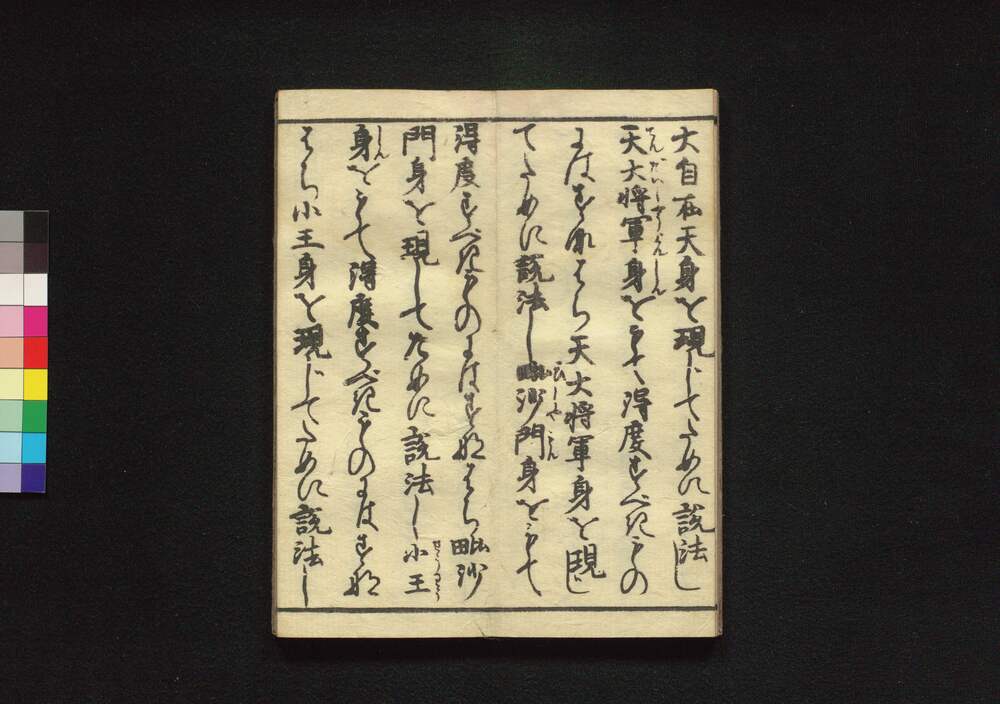 大自在天身を現じてために説法し
天大将軍身をもて得度すべきもの
にはすなはち天大将軍身を現じ
てために説法し毗沙門身をもて
得度すべきものにはすなはち毗沙
門身を現してために説法し小王
身をもて得度すべきものにはすな
はち小王身を現じてために説法し
てんだいしやうぐんしん
びしやもん
せうわう
しん